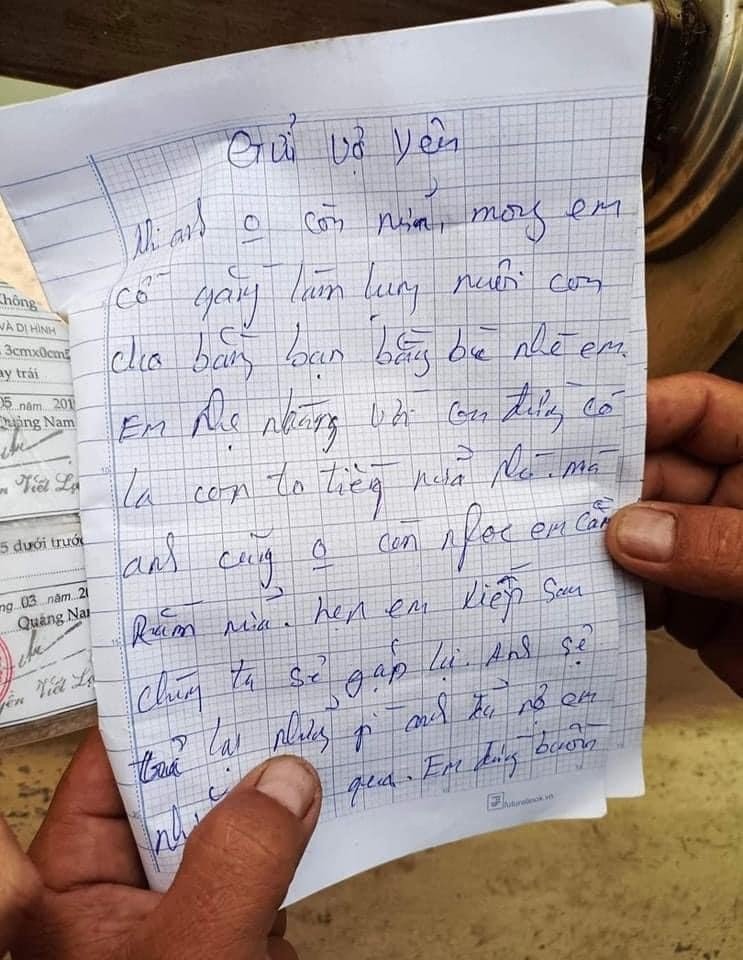 Gửi vợ yên
Khi anh o còn nữa, mong em
cố gắng làm lụng nuôi con
cho bằng bạn bằng bè nhé em.
Em nhẹ nhàng với con đừng có
la con to tiếng nữa nhé. mà
anh cũng o còn nghe em cằn
Rằn nữa. hẹn em kiếp sau
chúng ta sẽ gặp lại. Anh sẽ
trả lại những gì anh đã nợ em
qua. Em đừng buồn
futurebook.vn
Không
VÀ DỊ HÌNH
3cmx0cm5
ay trái
05 năm 201
Quảng Nam
Viết
5 dưới trước
ng 03 năm 20
Quảng Na
Viết